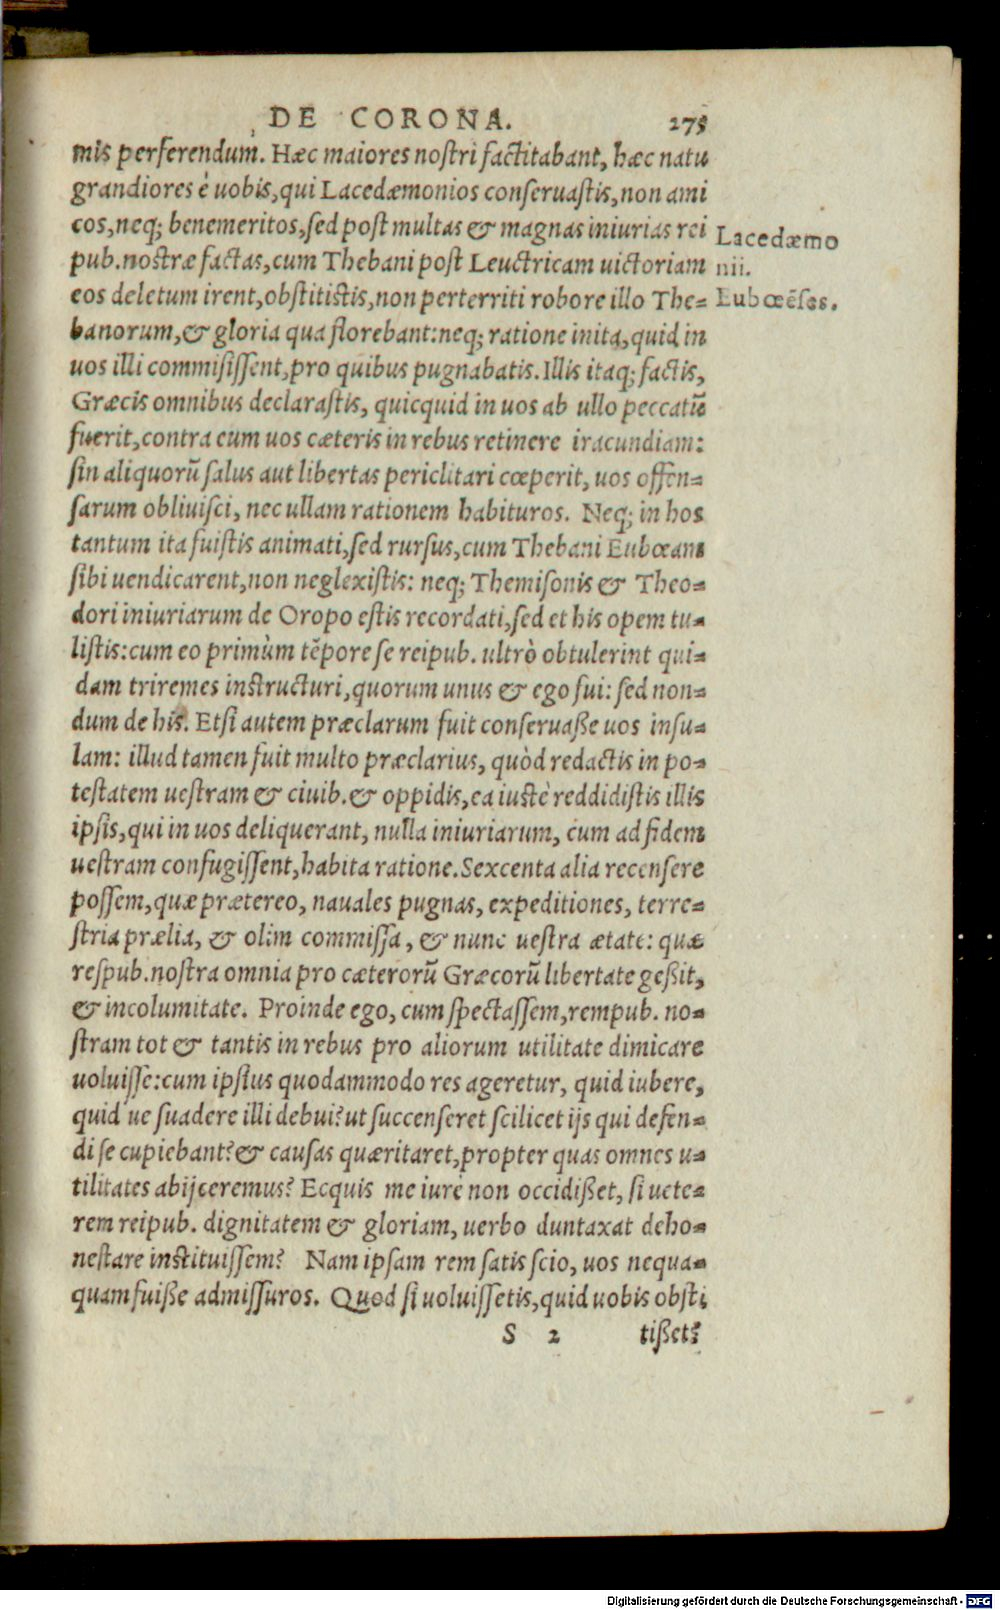 DE CORONA. 275
mis perferendum. Hæc maiores nostri factitabant, hæc natu
grandiores è uobis, qui Lacedæmonios conseruastis, non ami
cos, neq; benemeritos, sed post multas & magnas iniurias rei
pub. nostræ factas, cum Thebani post Leuctricam uictoriam
eos deletum irent, obstitistis, non perterriti robore illo The-
banorum, & gloria qua florebant: neq; ratione inita, quid in
uos illi commisissent, pro quibus pugnabatis. Illis itaq; factis,
Græcis omnibus declarastis, quicquid in uos ab ullo peccatũ
fuerit, contra eum uos cæteris in rebus retinere iracundiam:
sin aliquorũ salus aut libertas periclitari cœperit, uos offen-
sarum obliuisci, nec ullam rationem habituros. Neq; in hos
tantum ita fuistis animati, sed rursus, cum Thebani Eubœam
sibi uendicarent, non neglexistis: neq; Themisonis & Theo-
dori iniuriarum de Oropo estis recordati, sed et his opem tu-
listis: cum eo primùm tẽpore se reipub. ultrò obtulerint qui-
dam triremes instructuri, quorum unus & ego fui: sed non-
dum de his. Etsi autem præclarum fuit conseruaße uos insu-
lam: illud tamen fuit multo præclarius, quòd redactis in po-
testatem uestram & ciuib. & oppidis, ea iustè reddidistis illis
ipsis, qui in uos deliquerant, nulla iniuriarum, cum ad fidem
uestram confugissent, habita ratione. Sexcenta alia recensere
possem, quæ prætereo, nauales pugnas, expeditiones, terre-
stria prælia, & olim commissa, & nunc uestra ætate: quæ
respub. nostra omnia pro cæterorũ Græcorũ libertate geßit,
& incolumitate. Proinde ego, cum spectassem, rempub. no-
stram tot & tantis in rebus pro aliorum utilitate dimicare
uoluisse: cum ipsius quodammodo res ageretur, quid iubere,
quid ue suadere illi debui? ut succenseret scilicet ijs qui defen-
di se cupiebant? & causas quæritaret, propter quas omnes u-
tilitates abijceremus? Ecquis me iure non occidißet, si uete-
rem reipub. dignitatem & gloriam, uerbo duntaxat deho-
nestare instituissem? Nam ipsam rem satis scio, uos nequa-
quam fuiße admissuros. Quod si uoluissetis, quid uobis obsti
S 2 tißet?
Lacedæmo
nii.
Eubœẽses.
Digitalisierung gefördert durch die Deutsche Forschungsgemeinschaft - DFG